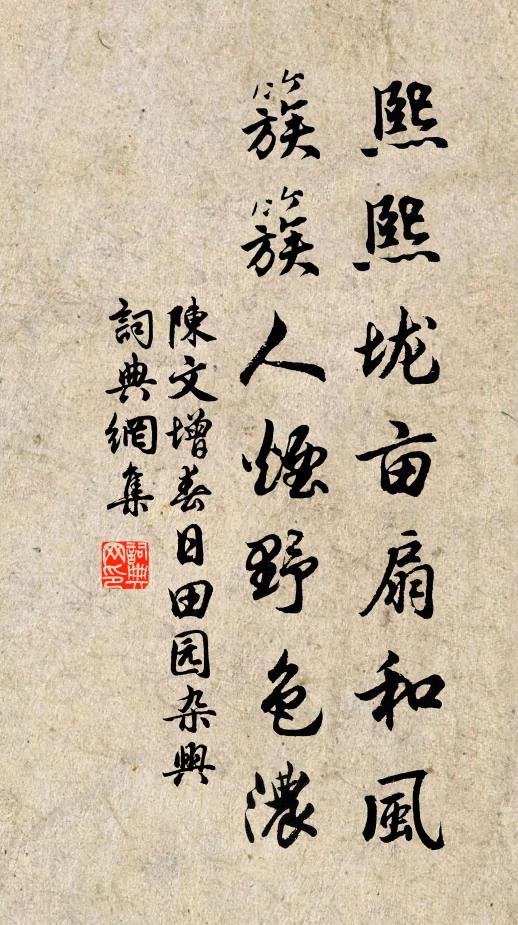 熙熙垅亩扇和風
簇簇人煙野色濃
陳文增春日田园杂興
詞典網集
詞典
网印